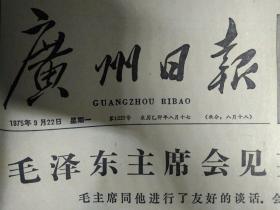 廣州日報
GUANGZHOU RIBAO
1975年9月22日 星期一 农历乙卯年八月十七 (秋分:八月十八)
毛泽东主席会见
毛主席同他进行了友好的谈话。